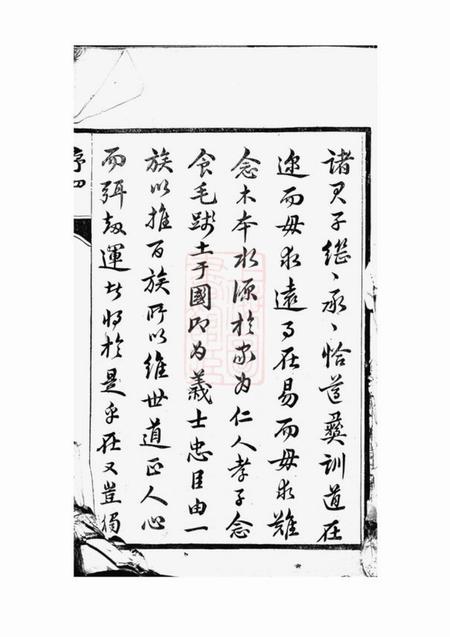 諸君子繼〻承〻恪遵彝訓道在
邇而毋求遠事在易而毋求難
念木本水源於家為仁人孝子念
食毛踐土于國即為義士忠臣由一
族以推百族所以維世道正人心
而弭劫運者將於是乎在又豈獨
序四